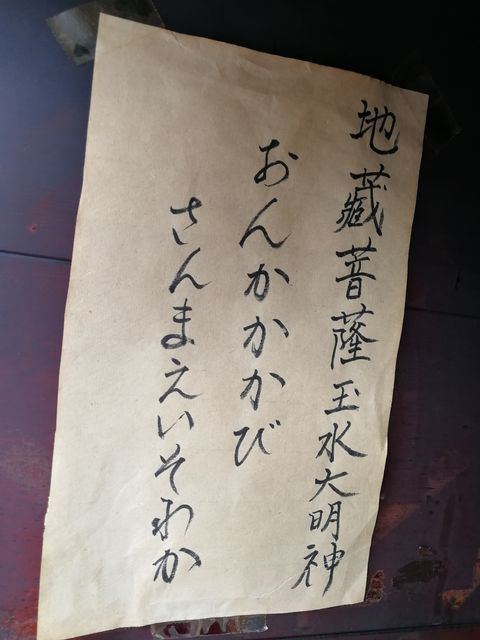 地藏菩薩玉水大明神
おんかかかび
さんまえいそわか